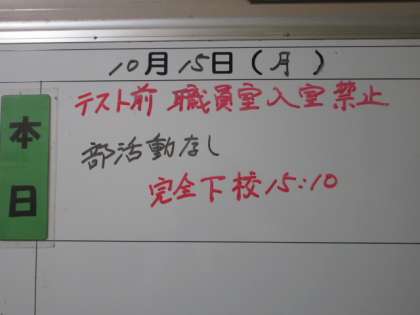 10月15日(月)
本日
テスト前 職員室入室禁止
部活動なし
完全下校15:10